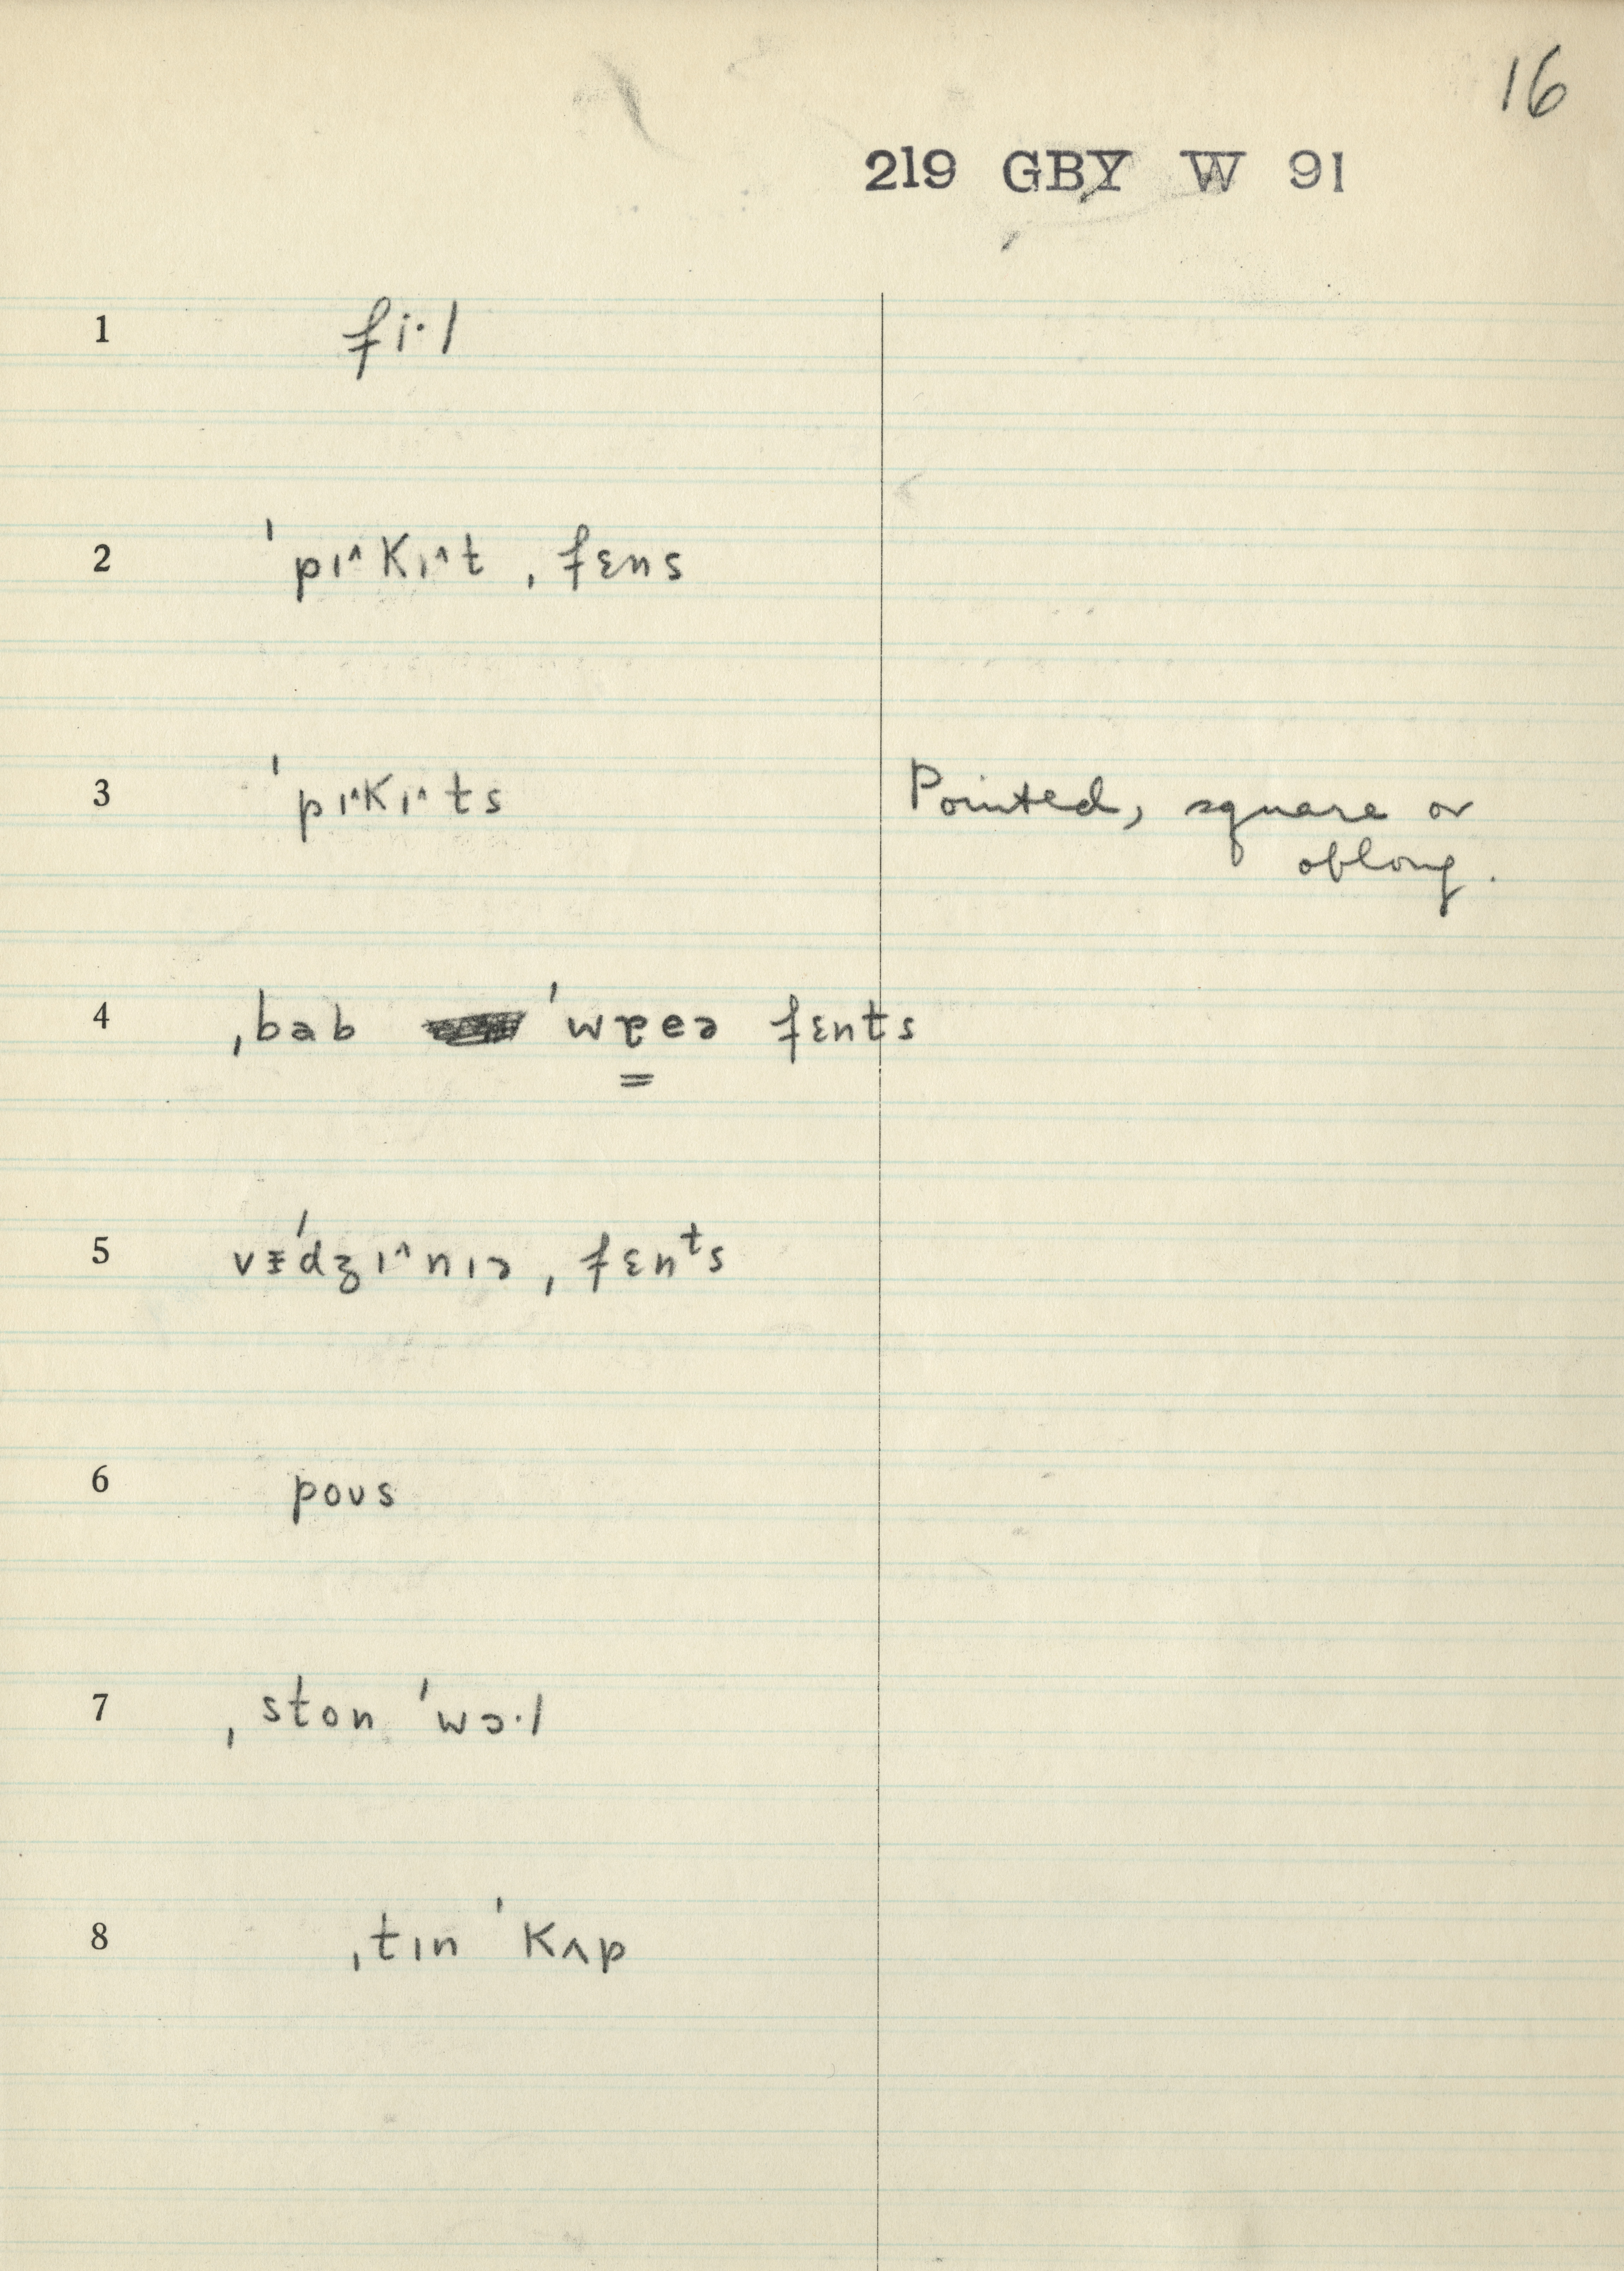 16
219 GBY W 91
1 fi·l
2 ˈpɪ^kɪ^t ˌfɛns
3 ˈpɪ^kɪ^ts Pointed, square or
oblong.
4 ˌbab ˈwɐeə fɛnts
5 vɪˈdʒɪ^nɪə ˌfɛnᵗs
6 poʊs
7 ˌston ˈwɔ·l
8 ˌtɪn ˈkʌp